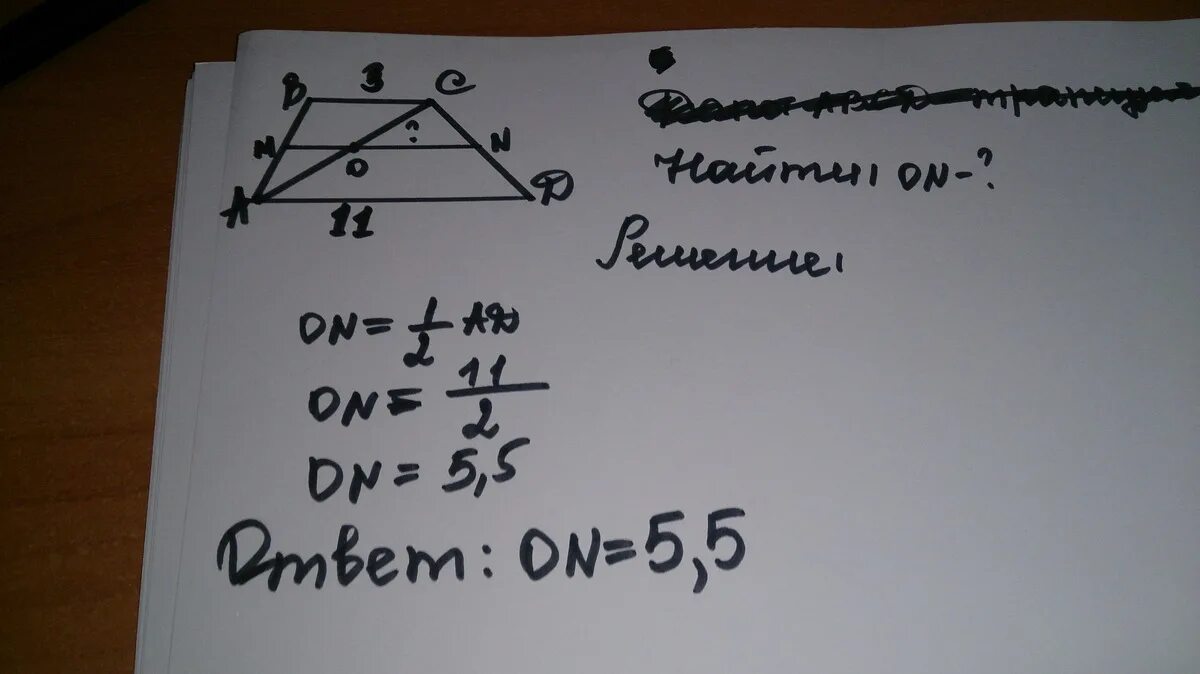 B 3 C
M ? N
O
A D
11
Найти: ON-?
Решение:
ON = 1/2 AD
ON = 11/2
ON = 5,5
Ответ: ON = 5,5